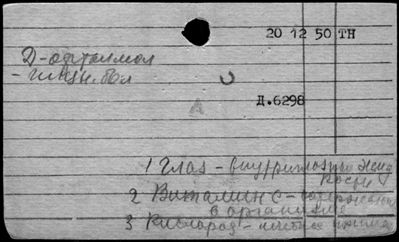 20 12 50 ТН
Д-офталмол
- гинн. бол
Д.6298
1 Глаз - внутриглазные жид
кости
2 Витамин С - содержание
в организме
3 Кислород -